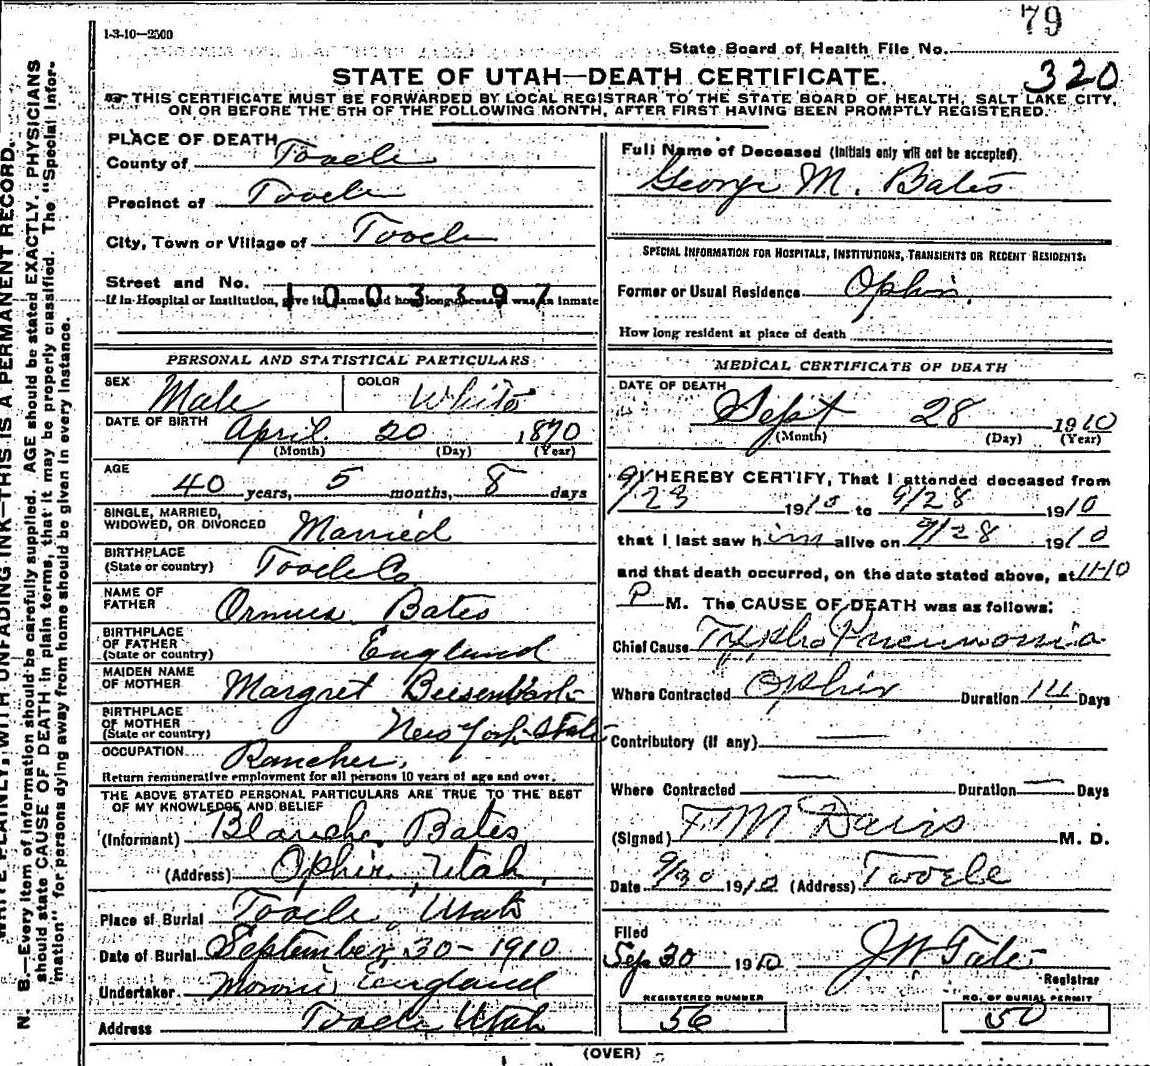 79
1-3-10—2500
State Board of Health File No.
320
STATE OF UTAH—DEATH CERTIFICATE.
THIS CERTIFICATE MUST BE FORWARDED BY LOCAL REGISTRAR TO THE STATE BOARD OF HEALTH, SALT LAKE CITY,
ON OR BEFORE THE 5TH OF THE FOLLOWING MONTH, AFTER FIRST HAVING BEEN PROMPTLY REGISTERED.
PLACE OF DEATH
County of Tooele
Precinct of Tooele
City, Town or Village of Tooele
Street and No.
1003397
If in Hospital or Institution, give its name and how long deceased was an inmate
PERSONAL AND STATISTICAL PARTICULARS
SEX Male COLOR White
DATE OF BIRTH April 20, 1870
(Month) (Day) (Year)
AGE
40 years, 5 months, 8 days
SINGLE, MARRIED,
WIDOWED, OR DIVORCED Married
BIRTHPLACE
(State or country) Tooele Co
NAME OF
FATHER Ormus Bates
BIRTHPLACE
OF FATHER
(State or country) England
MAIDEN NAME
OF MOTHER Margret
BIRTHPLACE
OF MOTHER
(State or country) New York State
OCCUPATION Rancher.
Return remunerative employment for all persons 10 years of age and over.
THE ABOVE STATED PERSONAL PARTICULARS ARE TRUE TO THE BEST
OF MY KNOWLEDGE AND BELIEF
(Informant) Blanche Bates
(Address) Ophir, Utah.
Place of Burial Tooele, Utah
Date of Burial September 30—1910
Undertaker Moroni England
Address Tooele Utah
Full Name of Deceased (Initials only will not be accepted).
George M. Bates
SPECIAL INFORMATION FOR HOSPITALS, INSTITUTIONS, TRANSIENTS OR RECENT RESIDENTS:
Former or Usual Residence Ophir.
How long resident at place of death
MEDICAL CERTIFICATE OF DEATH
DATE OF DEATH
Sept 28 1910
(Month) (Day) (Year)
I HEREBY CERTIFY, That I attended deceased from
9/23 1910 to 9/28 1910
that I last saw him alive on 9/28 1910
and that death occurred, on the date stated above, at 11-10
P M. The CAUSE OF DEATH was as follows:
Chief Cause Typho Pneumonia
Where Contracted Ophir Duration 14 Days
Contributory (if any) —
Where Contracted — Duration — Days
(Signed) F M Davis M. D.
Date 9/30 1910 (Address) Tooele
Filed
Sep 30 1910 J W Tate
Registrar
REGISTERED NUMBER
56
NO. OF BURIAL PERMIT
50
(OVER)
WRITE PLAINLY, WITH UNFADING INK—THIS IS A PERMANENT RECORD.
N. B.—Every item of information should be carefully supplied. AGE should be stated EXACTLY. PHYSICIANS
should state CAUSE OF DEATH in plain terms, that it may be properly classified. The "Special Infor-
mation" for persons dying away from home should be given in every instance.